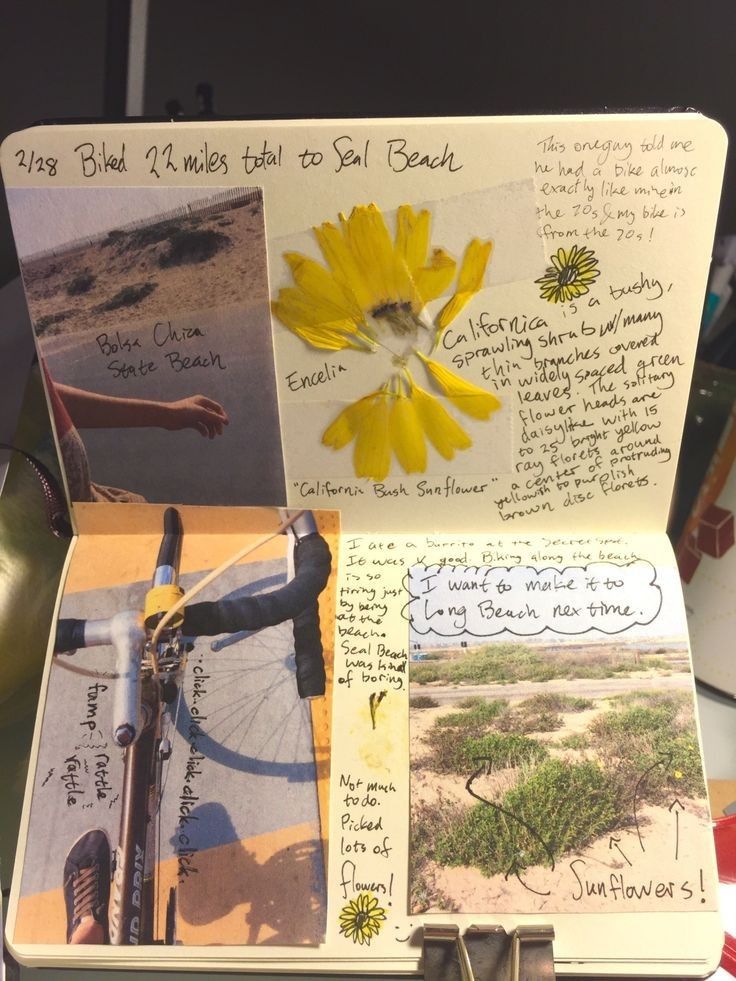 2/28 Biked 22 miles total to Seal Beach
This one guy told me
he had a bike almost
exactly like mine in
the 70s & my bike is
from the 70s!
Bolsa Chica
State Beach
Encelia
Californica is a bushy,
sprawling shrub w/ many
thin branches covered
in widely spaced green
leaves. The solitary
flower heads are
daisylike with 15
to 25 bright yellow
ray florets around
a center of protruding
yellowish to purplish
brown disc florets.
"California Bush Sunflower"
I ate a burrito at the Secret Spot.
It was good. Biking along the beach
is so
tiring just
by being
at the
beach.
Seal Beach
was kind
of boring.
I want to make it to
Long Beach next time.
click.click.click.click.click.click.
fump
rattle
rattle
Not much
to do.
Picked
lots of
flowers!
Sunflowers!